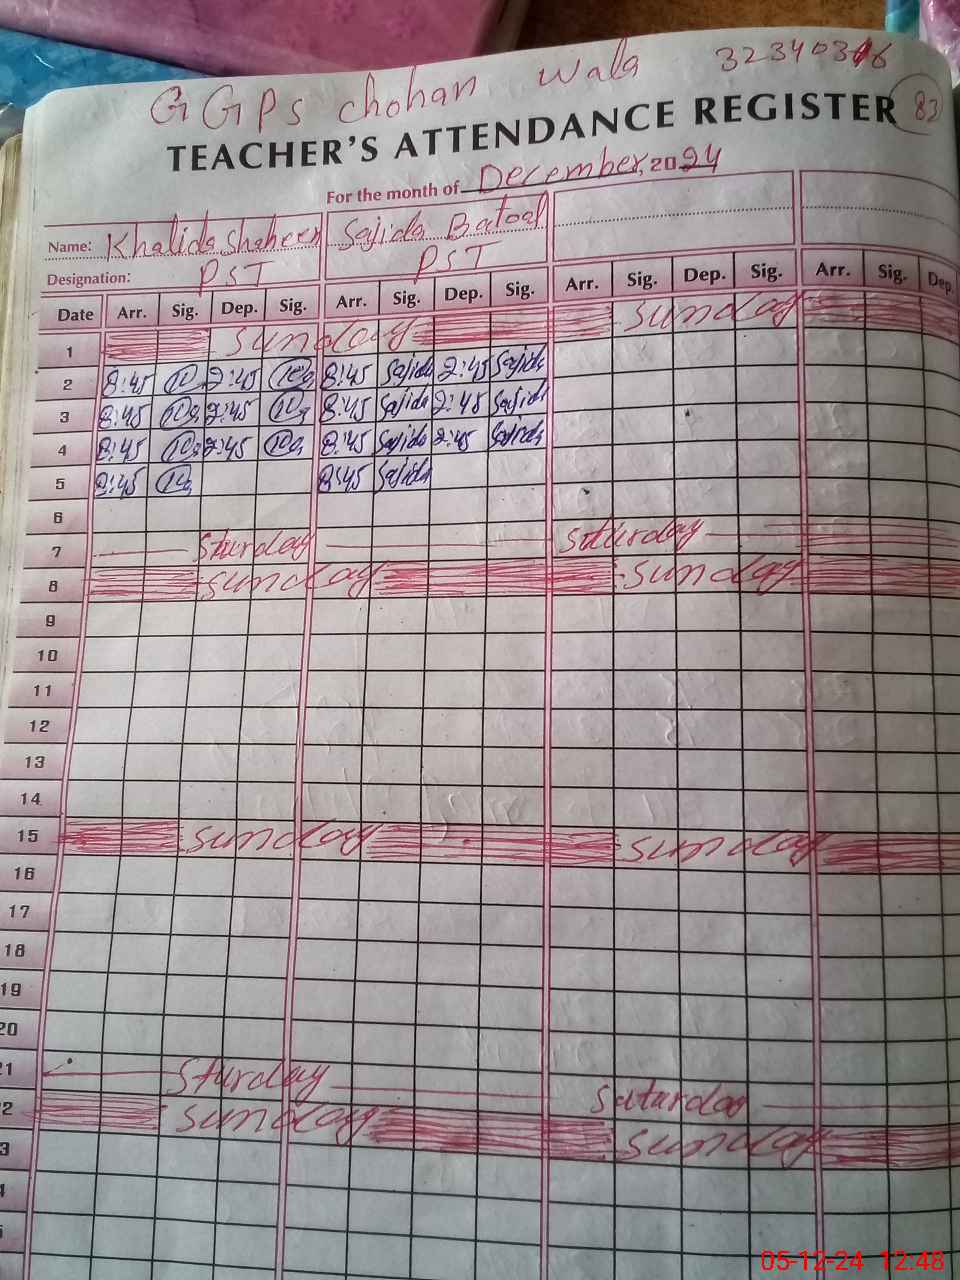 GGPS chohan wala 32340316
TEACHER'S ATTENDANCE REGISTER 83
For the month of December, 2024
Name: Khalida Shaheen Sajida Batool
Designation: PST PST
Date Arr. Sig. Dep. Sig. Arr. Sig. Dep. Sig. Arr. Sig. Dep. Sig. Arr. Sig. Dep.
1 sunday sunday
2 8:45 2:45 8:45 Sajida 2:45 Sajida
3 8:45 2:45 8:45 Sajida 2:45 Sajida
4 8:45 2:45 8:45 Sajida 2:45 Sajida
5 8:45 8:45 Sajida
6
7 Sturday saturday
8 sunday sunday
9
10
11
12
13
14
15 sunday sunday
16
17
18
19
20
21 Sturday saturday
22 sunday sunday
05-12-24 12:48